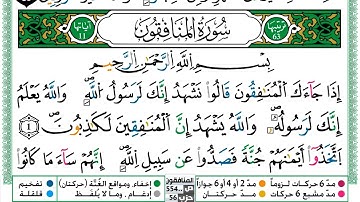 ترتيبها ٦٣ سُورَةُ المُنَافِقُونَ آياتها ١١
بِسْمِ اللَّهِ الرَّحْمَٰنِ الرَّحِيمِ
إِذَا جَآءَكَ ٱلْمُنَٰفِقُونَ قَالُوا۟ نَشْهَدُ إِنَّكَ لَرَسُولُ ٱللَّهِ ۗ وَٱللَّهُ يَعْلَمُ
إِنَّكَ لَرَسُولُهُۥ وَٱللَّهُ يَشْهَدُ إِنَّ ٱلْمُنَٰفِقِينَ لَكَٰذِبُونَ ١
ٱتَّخَذُوٓا۟ أَيْمَٰنَهُمْ جُنَّةً فَصَدُّوا۟ عَن سَبِيلِ ٱللَّهِ ۚ إِنَّهُمْ سَآءَ مَا كَانُوا۟
مدّ ٦ حركات لزوماً مدّ ٢ أو ٤ أو ٦ جوازاً المنافقون إخفاء، ومواقع الغُنَّة (حركتان) تفخيم
مدّ مشبع ٦ حركات مدّ حركتان حزب 56 إدغام، وما لا يُلفَظ قلقلة